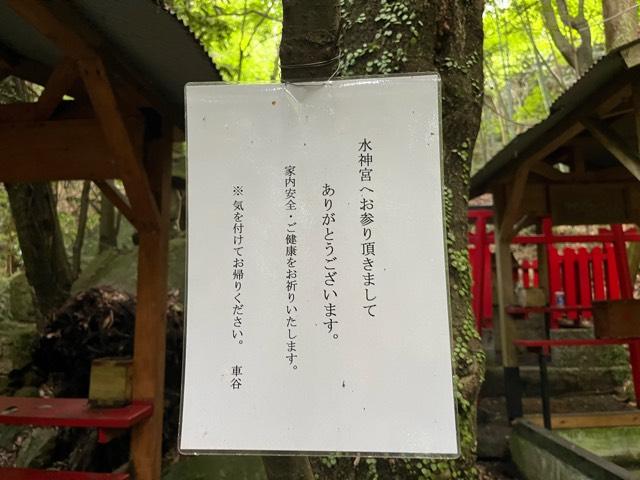 水神宮へお参り頂きまして
ありがとうございます。
家内安全・ご健康をお祈りいたします。
※気を付けてお帰りください。 車谷